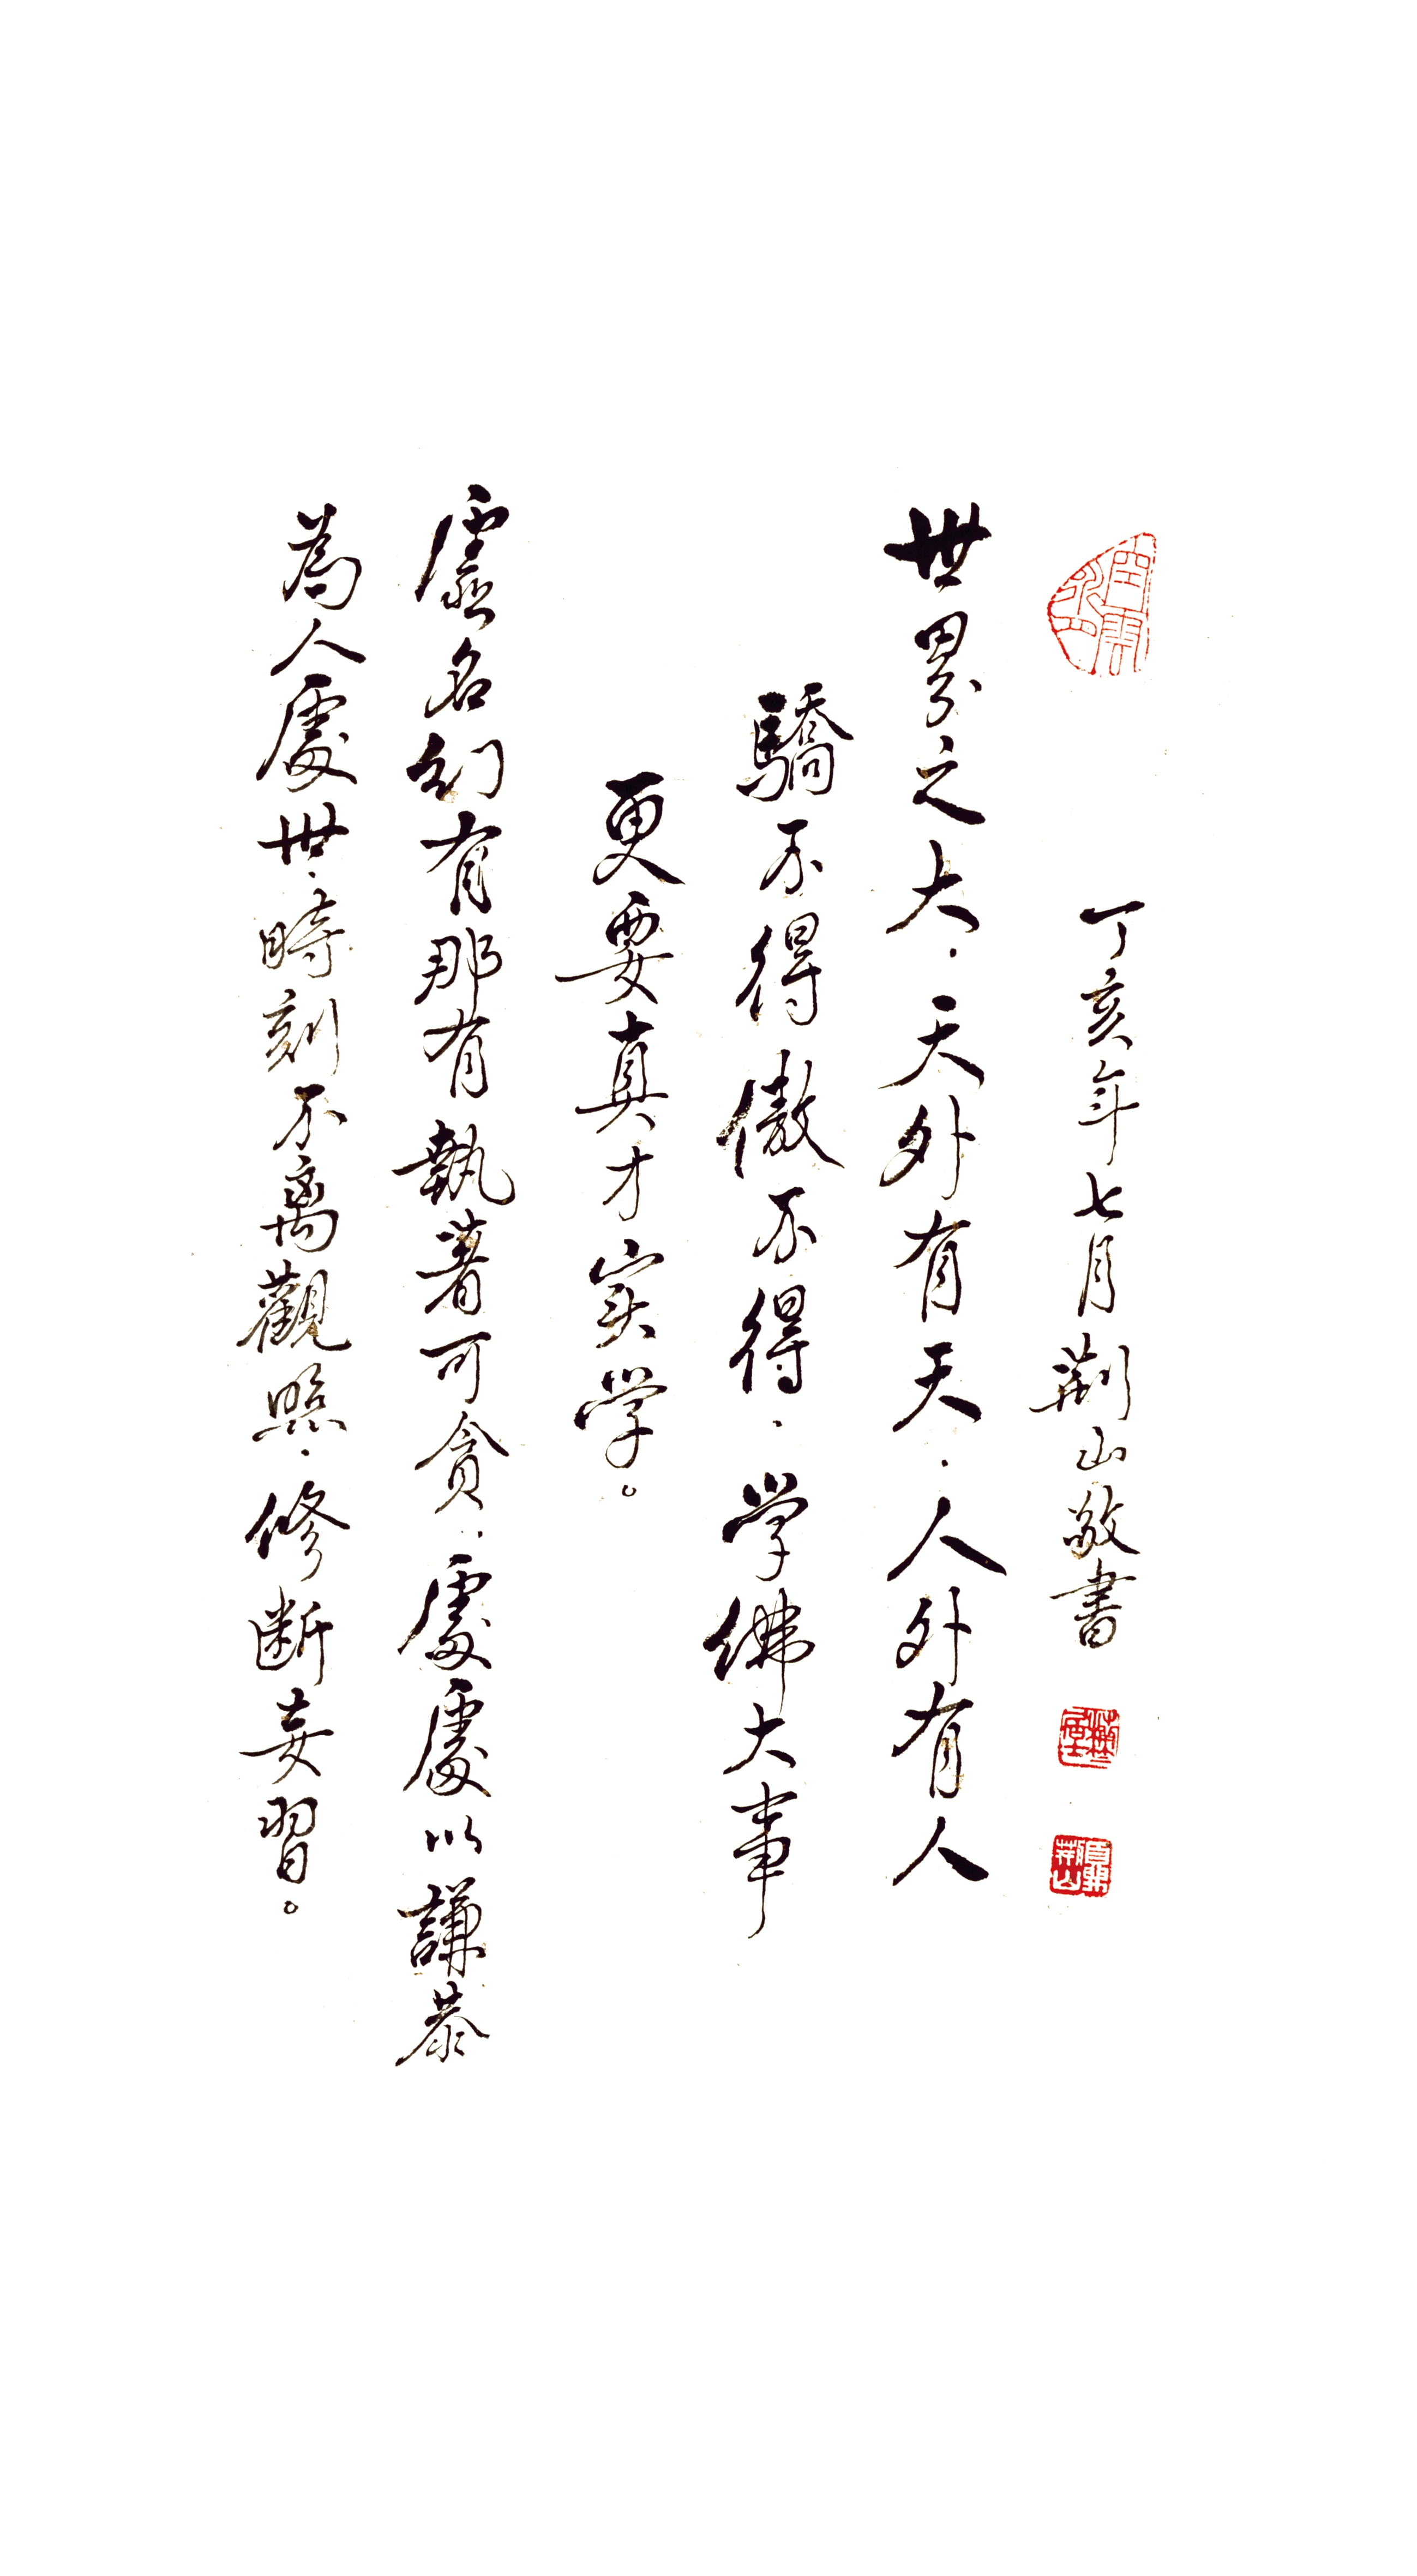 丁亥年七月荆山敬書
世界之大，天外有天，人外有人
驕不得傲不得，学佛大事
更要真才实学。
虛名幻有那有執著可貪，處處以謙恭
為人處世，時刻不离觀照，修断妄習。